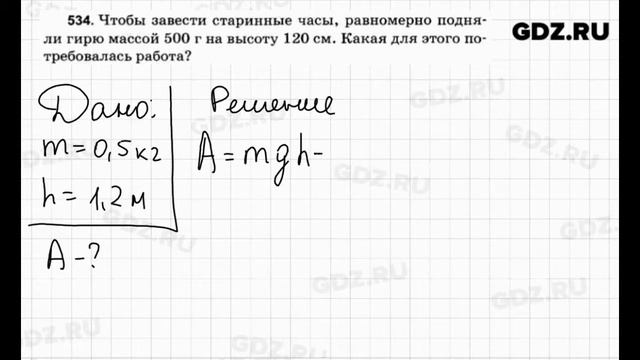 534. Чтобы завести старинные часы, равномерно подня-
ли гирю массой 500 г на высоту 120 см. Какая для этого по-
требовалась работа?
GDZ.RU
Дано:
m = 0,5 кг
h = 1,2 м
A - ?
Решение
A = mgh -
GDZ.RU
GDZ.RU
GDZ.RU
GDZ.RU
GDZ.RU
GDZ.RU
GDZ.RU
GDZ.RU
GDZ.RU